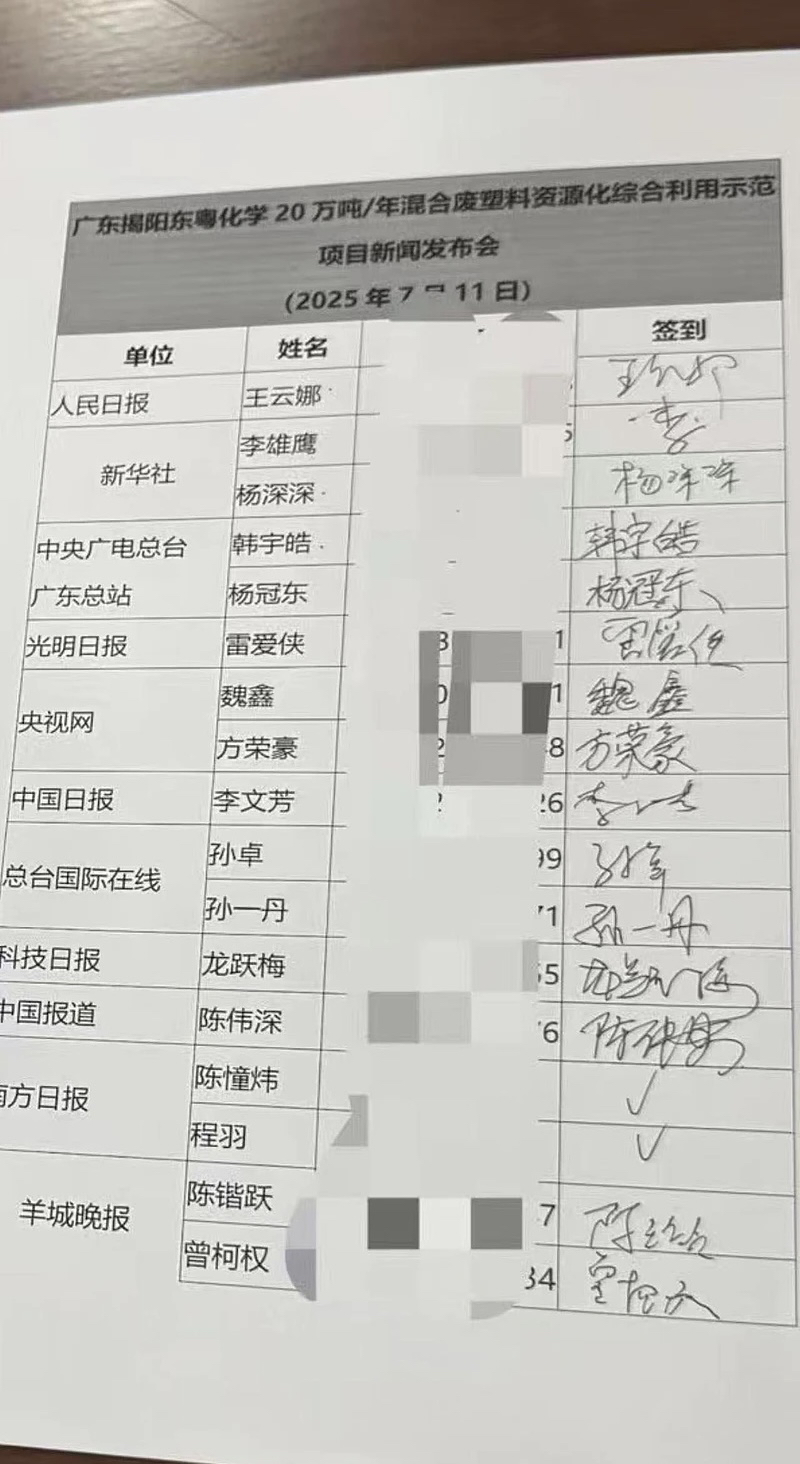 广东揭阳东粤化学20万吨/年混合废塑料资源化综合利用示范
项目新闻发布会
(2025年7月11日)
单位 姓名 签到
人民日报 王云娜
新华社 李雄鹰 5
杨深深 杨深深
中央广电总台 韩宇皓 韩宇皓
广东总站 杨冠东 杨冠东
光明日报 雷爱侠 3 1 雷爱侠
央视网 魏鑫 0 1 魏鑫
方荣豪 2 8 方荣豪
中国日报 李文芳 2 26
总台国际在线 孙卓 99
孙一丹 71 孙一丹
科技日报 龙跃梅 55 龙跃梅
中国报道 陈伟深 76 陈伟深
南方日报 陈憧炜 ✓
程羽 ✓
羊城晚报 陈锴跃 7
曾柯权 34